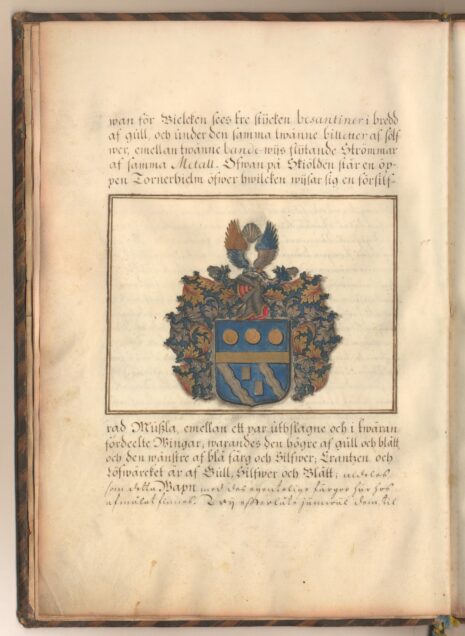 wan för Bielcken sees tre stÿcken besantiner i bredd
af gull, och under den samma twänne billetter af solf
wer, emellan twänne bande wijs flÿtande Strömmar
af samma Metall. Ofwan på Skiölden står en öp-
pen Tornerhielm öfwer hwilcken wijsar sig en försilf-
rad Mußla, emellan ett par uthslagne och i kwäran
fördeelte Wingar, warandes den högre af gull och blått
och den wänstre af blå färg och Silfwer; Crantzen och
Löfwärcket är af Gull, Silfwer och Blått; aldeles
som detta Wapn med des egentelige färgor här hos
afmålat finnes. efterlåte jemwäl dem, til